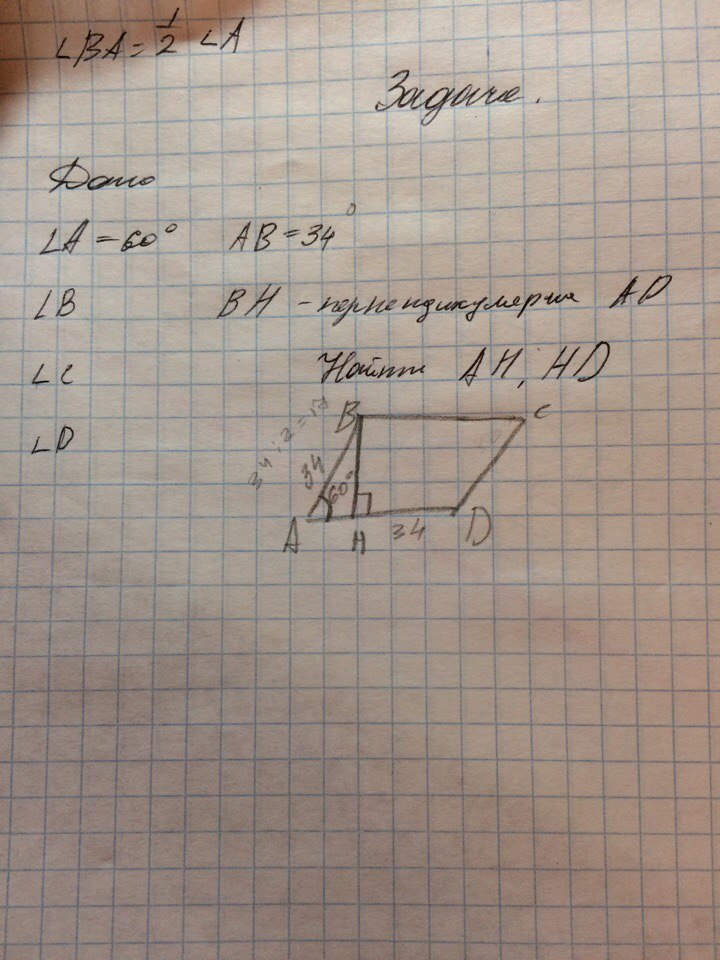 ∠BA = 1/2 ∠A
Задача.
Дано
∠A = 60° AB = 34°
∠B BH - перпендикулярна AD
∠C Найти AH, HD
∠D
34 : 2 = 17
B C
34 60°
A H 34 D